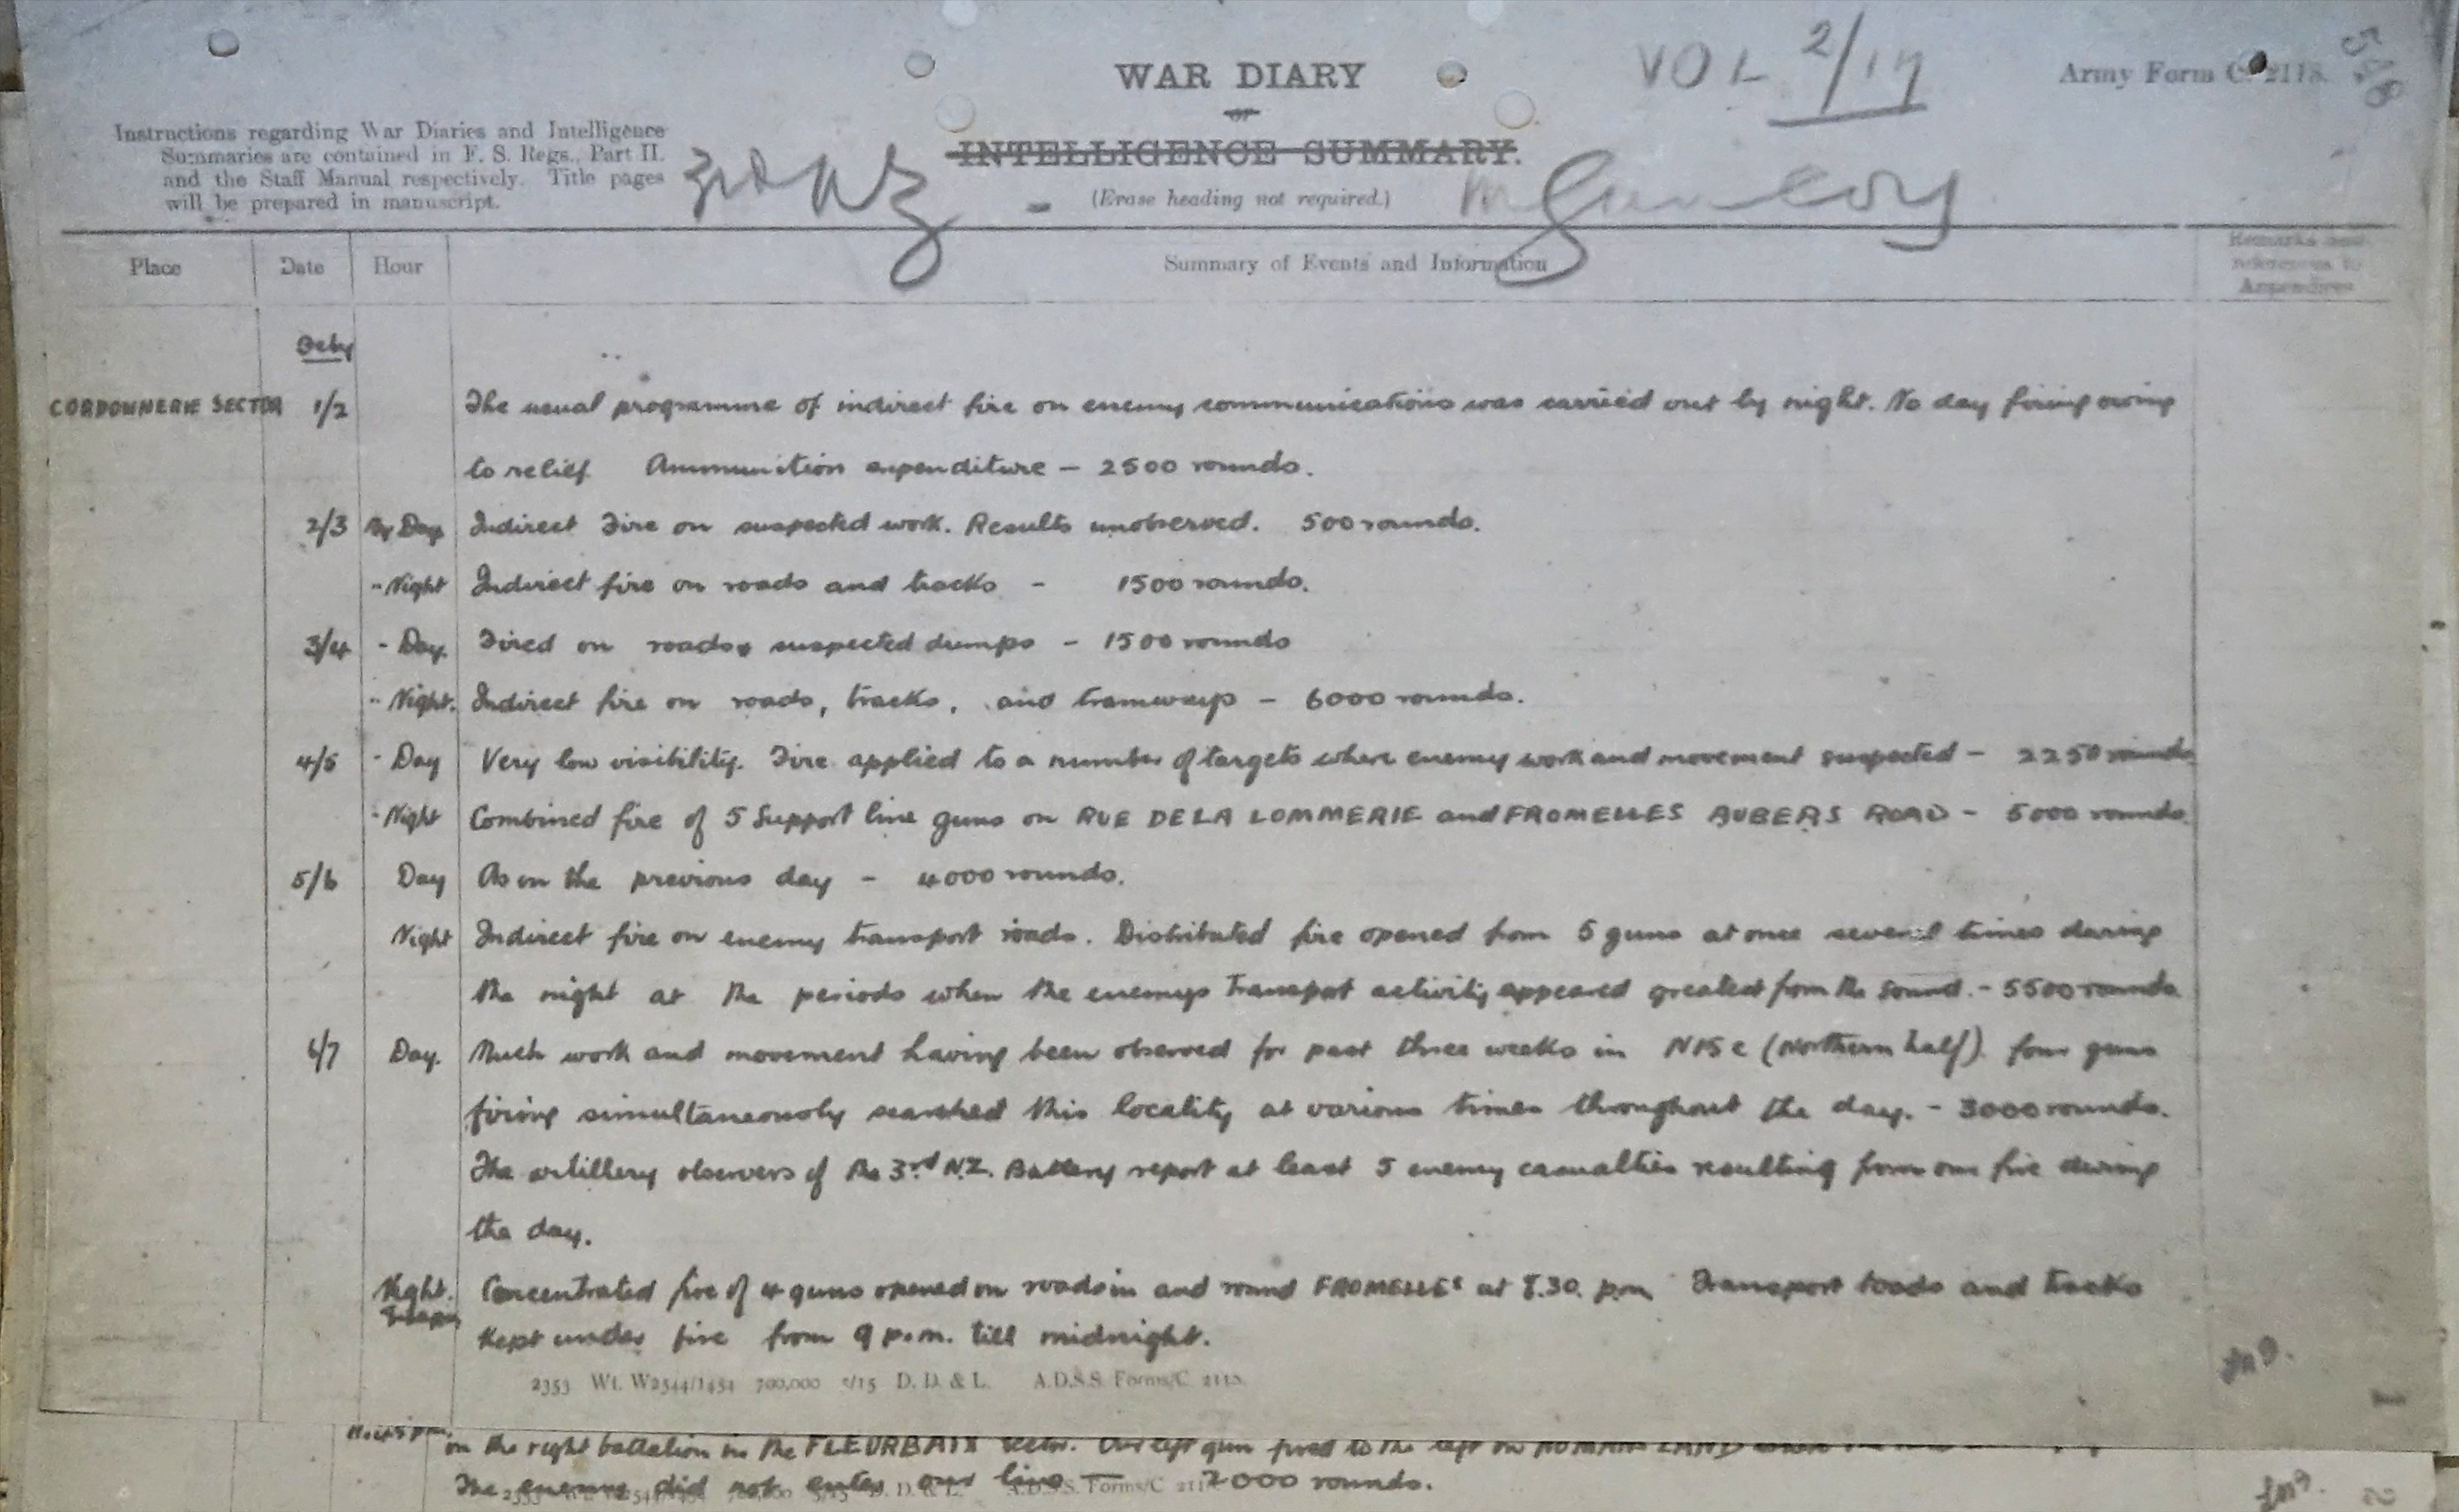 WAR DIARY
OF
INTELLIGENCE SUMMARY.
(Erase heading not required.)
VOL 2/17
Army Form C. 2118.
548
Instructions regarding War Diaries and Intelligence
Summaries are contained in F. S. Regs., Part II.
and the Staff Manual respectively. Title pages
will be prepared in manuscript.
3rd NZ - M Gun Coy
Place Date Hour Summary of Events and Information Remarks and references to Appendices
Feby
CORDONNERIE SECTOR 1/2 The usual programme of indirect fire on enemy communications was carried out by night. No day firing owing
to relief Ammunition expenditure – 2500 rounds.
2/3 By Day Indirect Fire on suspected work. Results unobserved. 500 rounds.
" Night Indirect fire on roads and tracks - 1500 rounds.
3/4 - Day. Fired on roads & suspected dumps – 1500 rounds
" Night. Indirect fire on roads, tracks, and tramways – 6000 rounds.
4/5 - Day Very low visibility. Fire applied to a number of targets where enemy work and movement suspected – 2250 rounds
- Night Combined fire of 5 Support line guns on RUE DE LA LOMMERIE and FROMELLES AUBERS ROAD – 5000 rounds.
5/6 Day As on the previous day – 4000 rounds.
Night Indirect fire on enemy transport roads. Distributed fire opened from 5 guns at once several times during
the night at the periods when the enemys transport activity appeared greatest from the sound. - 5500 rounds
6/7 Day. Much work and movement having been observed for past three weeks in N15c (Northern half) four guns
firing simultaneously searched this locality at various times throughout the day. - 3000 rounds.
The artillery observers of the 3rd N.Z. Battery report at least 5 enemy casualties resulting from our fire during
the day.
Night. Concentrated fire of 4 guns opened on roads in and round FROMELLES at 8.30. p.m. Transport roads and tracks
Kept under fire from 9 p.m. till midnight.
2353 Wt. W2544/1454 700,000 5/15 D. D. & L. A.D.S.S. Forms/C. 2118.
11.45 pm. on the right battalion in the FLEURBAIX sector. Our left gun fired to the left on NOMANS LAND
The enemy did not enter our line — 2000 rounds.